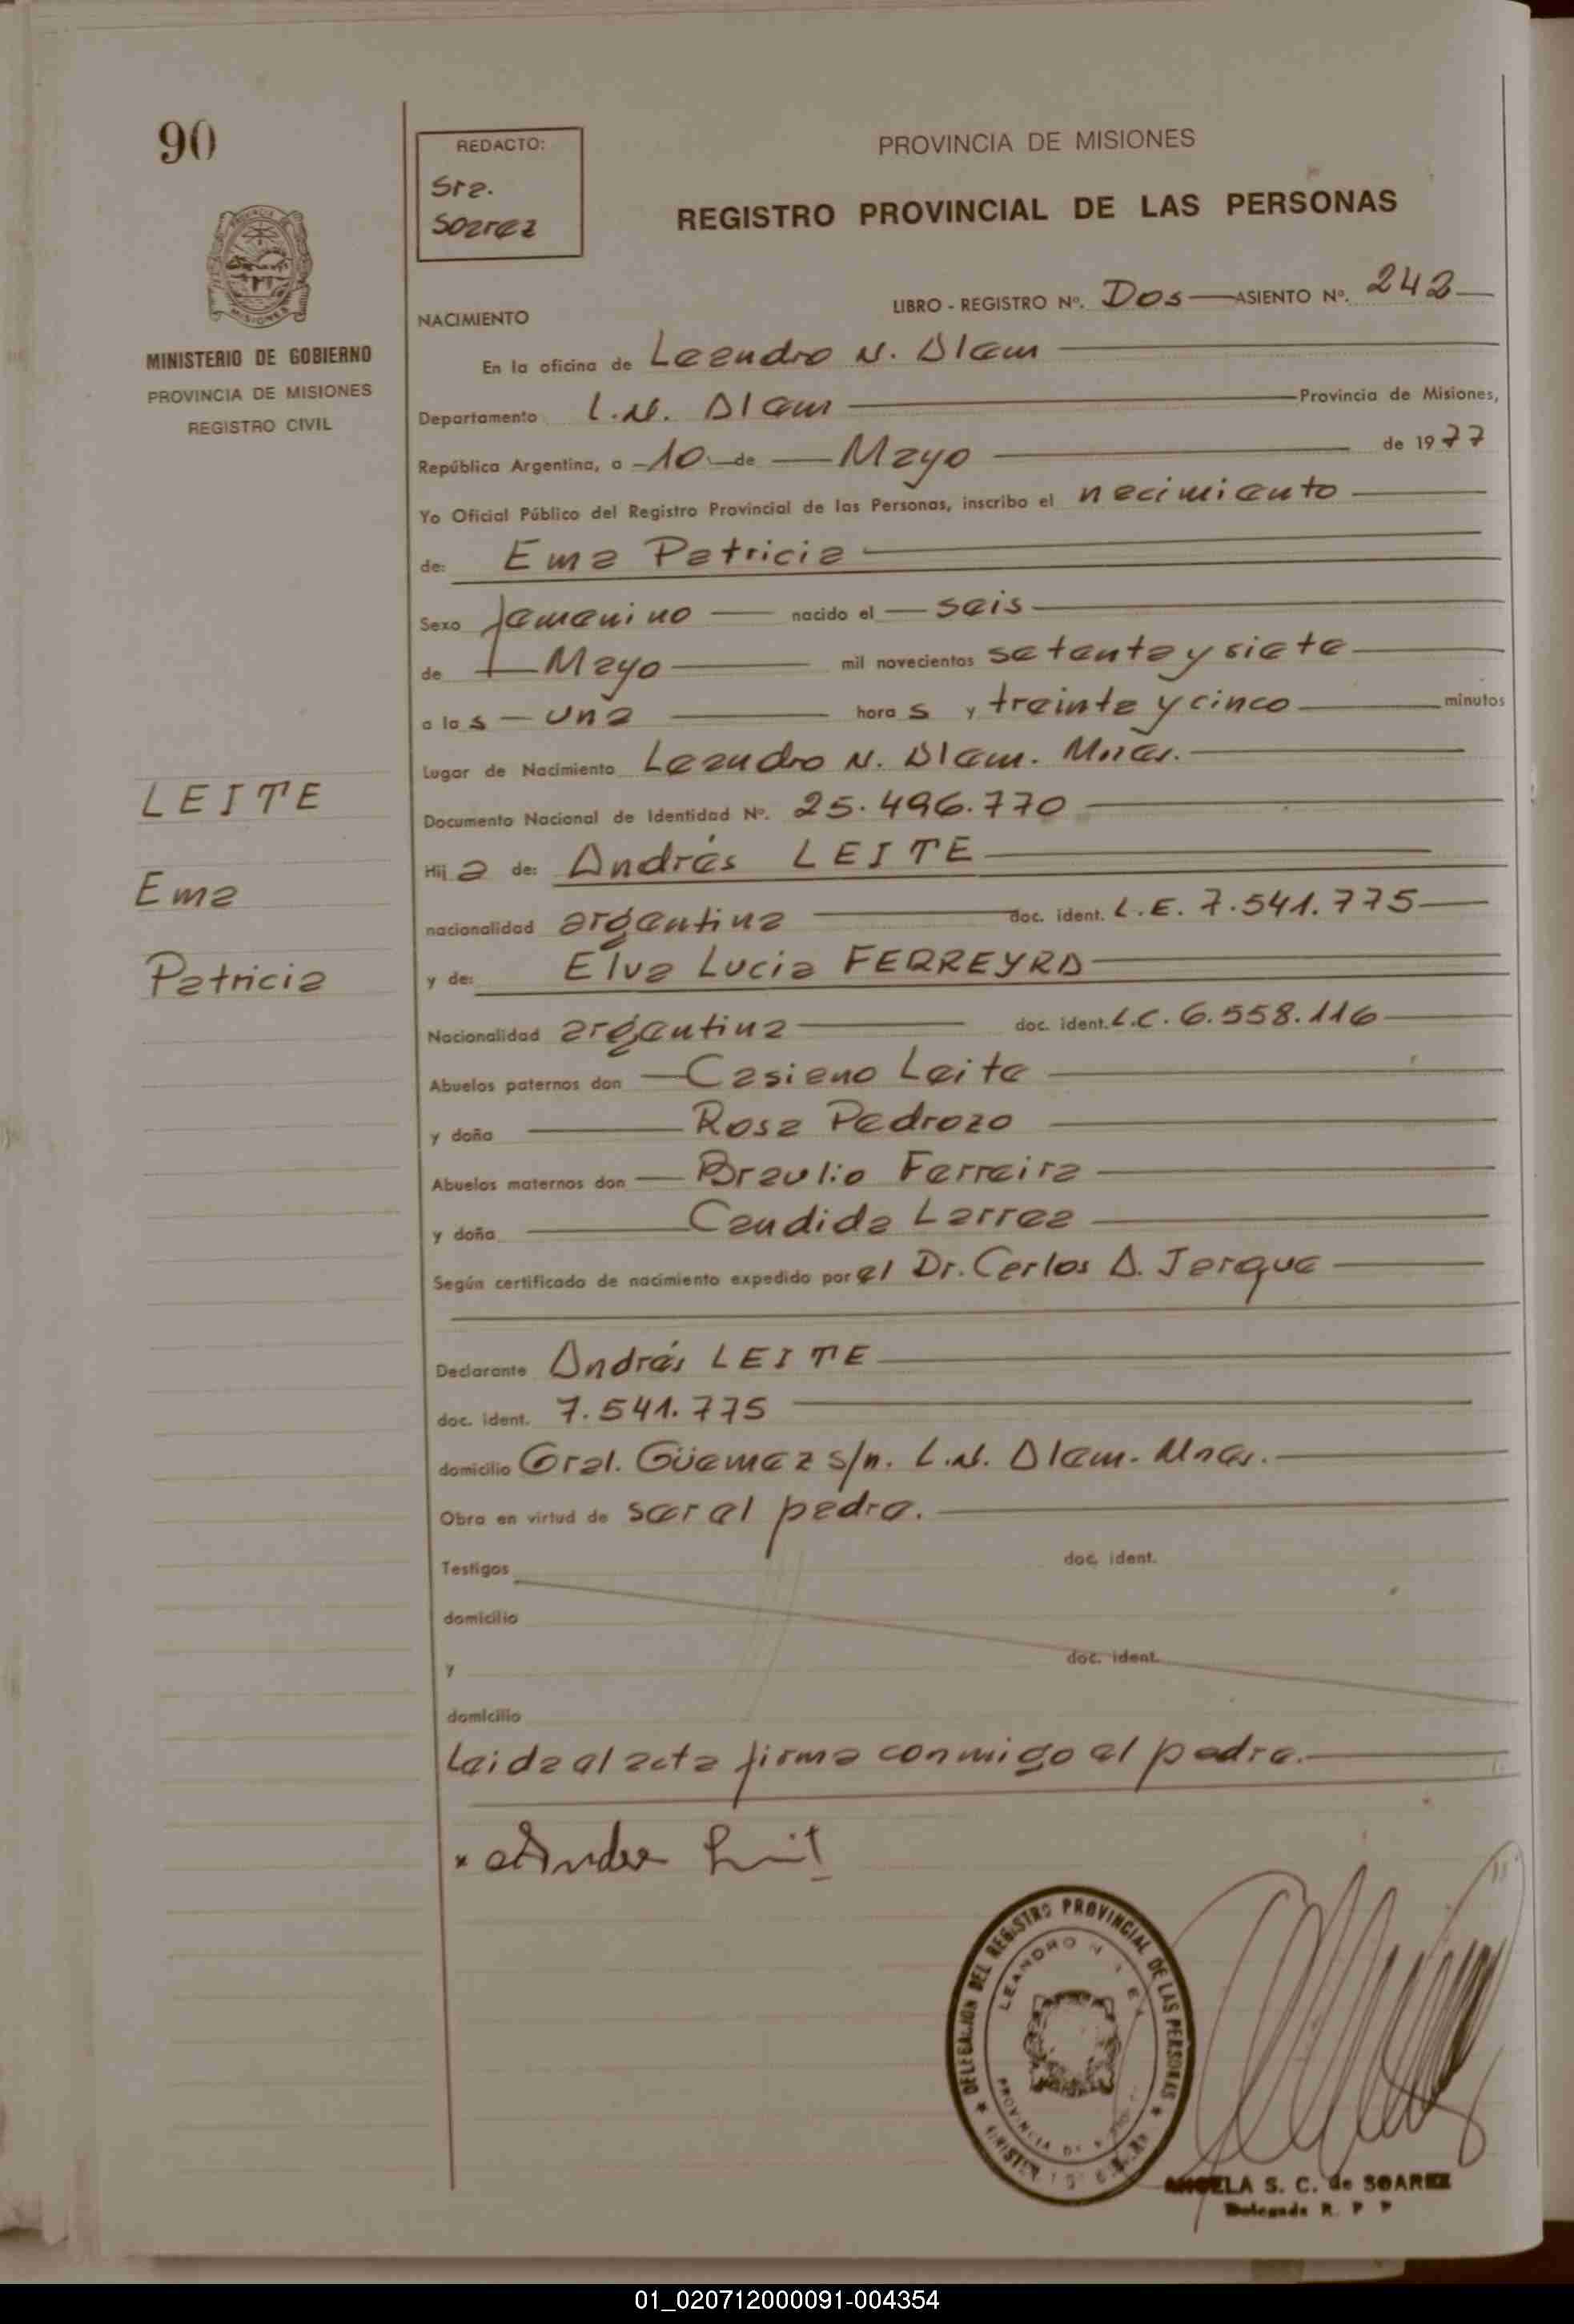 90
REDACTO:
Sra.
Soarez
PROVINCIA DE MISIONES
REGISTRO PROVINCIAL DE LAS PERSONAS
MINISTERIO DE GOBIERNO
PROVINCIA DE MISIONES
REGISTRO CIVIL
LIBRO - REGISTRO Nº. Dos ASIENTO Nº. 242
NACIMIENTO
En la oficina de Leandro N. Alem
Departamento L.N. Alem Provincia de Misiones,
República Argentina, a 10 de Mayo de 1977
Yo Oficial Público del Registro Provincial de las Personas, inscribo el nacimiento
de: Ema Patricia
Sexo femenino nacido el seis
de Mayo mil novecientos setenta y siete
a las una horas y treinta y cinco minutos
Lugar de Nacimiento Leandro N. Alem. Mnes.
LEITE
Ema
Patricia
Documento Nacional de Identidad Nº. 25.496.770
Hija de: Andrés LEITE
nacionalidad argentina doc. ident. L.E. 7.541.775
y de: Elva Lucia FERREYRA
Nacionalidad argentina doc. ident. L.C. 6.558.116
Abuelos paternos don Casiano Leite
y doña Rosa Pedrozo
Abuelos maternos don Braulio Ferreira
y doña Candida Larrea
Según certificado de nacimiento expedido por el Dr. Carlos A. Jerque
Declarante Andrés LEITE
doc. ident. 7.541.775
domicilio Gral. Güemez s/n. L.N. Alem. Mnes.
Obra en virtud de ser el padre.
Testigos doc. ident.
domicilio
y doc. ident.
domicilio
Leida el acta firma conmigo el padre.
DELEGACION DEL REGISTRO PROVINCIAL DE LAS PERSONAS
LEANDRO N.
PROVINCIA DE
ANGELA S. C. de SOAREZ
Delegada R. P. P
01_020712000091-004354